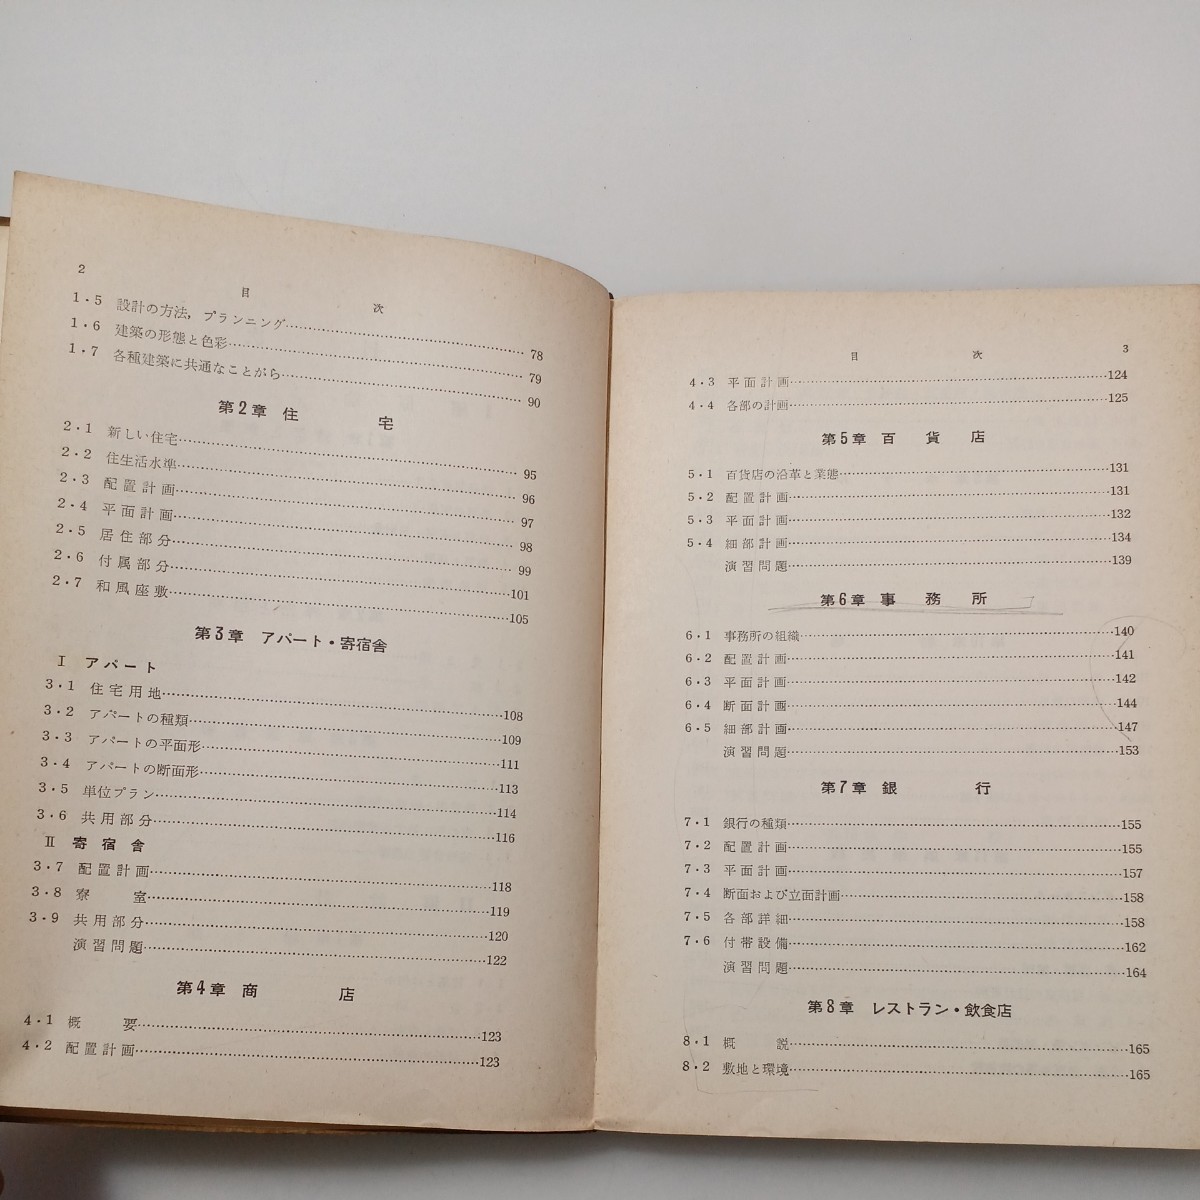 2
目　次
1・5 設計の方法，プランニング…78
1・6 建築の形態と色彩…79
1・7 各種建築に共通なことがら…90
第2章 住　宅
2・1 新しい住宅…95
2・2 住生活水準…96
2・3 配置計画…97
2・4 平面計画…98
2・5 居住部分…99
2・6 付属部分…101
2・7 和風座敷…105
第3章 アパート・寄宿舎
Ⅰ アパート
3・1 住宅用地…108
3・2 アパートの種類…109
3・3 アパートの平面形…111
3・4 アパートの断面形…113
3・5 単位プラン…114
3・6 共用部分…116
Ⅱ 寄宿舎
3・7 配置計画…118
3・8 寮　室…119
3・9 共用部分…120
演習問題…122
第4章 商　店
4・1 概　要…123
4・2 配置計画…123
目　次
3
4・3 平面計画…124
4・4 各部の計画…125
第5章 百　貨　店
5・1 百貨店の沿革と業態…131
5・2 配置計画…131
5・3 平面計画…132
5・4 細部計画…134
演習問題…139
第6章 事　務　所
6・1 事務所の組織…140
6・2 配置計画…141
6・3 平面計画…142
6・4 断面計画…144
6・5 細部計画…147
演習問題…153
第7章 銀　行
7・1 銀行の種類…155
7・2 配置計画…155
7・3 平面計画…157
7・4 断面および立面計画…158
7・5 各部詳細…158
7・6 付帯設備…162
演習問題…164
第8章 レストラン・飲食店
8・1 概　説…165
8・2 敷地と環境…165